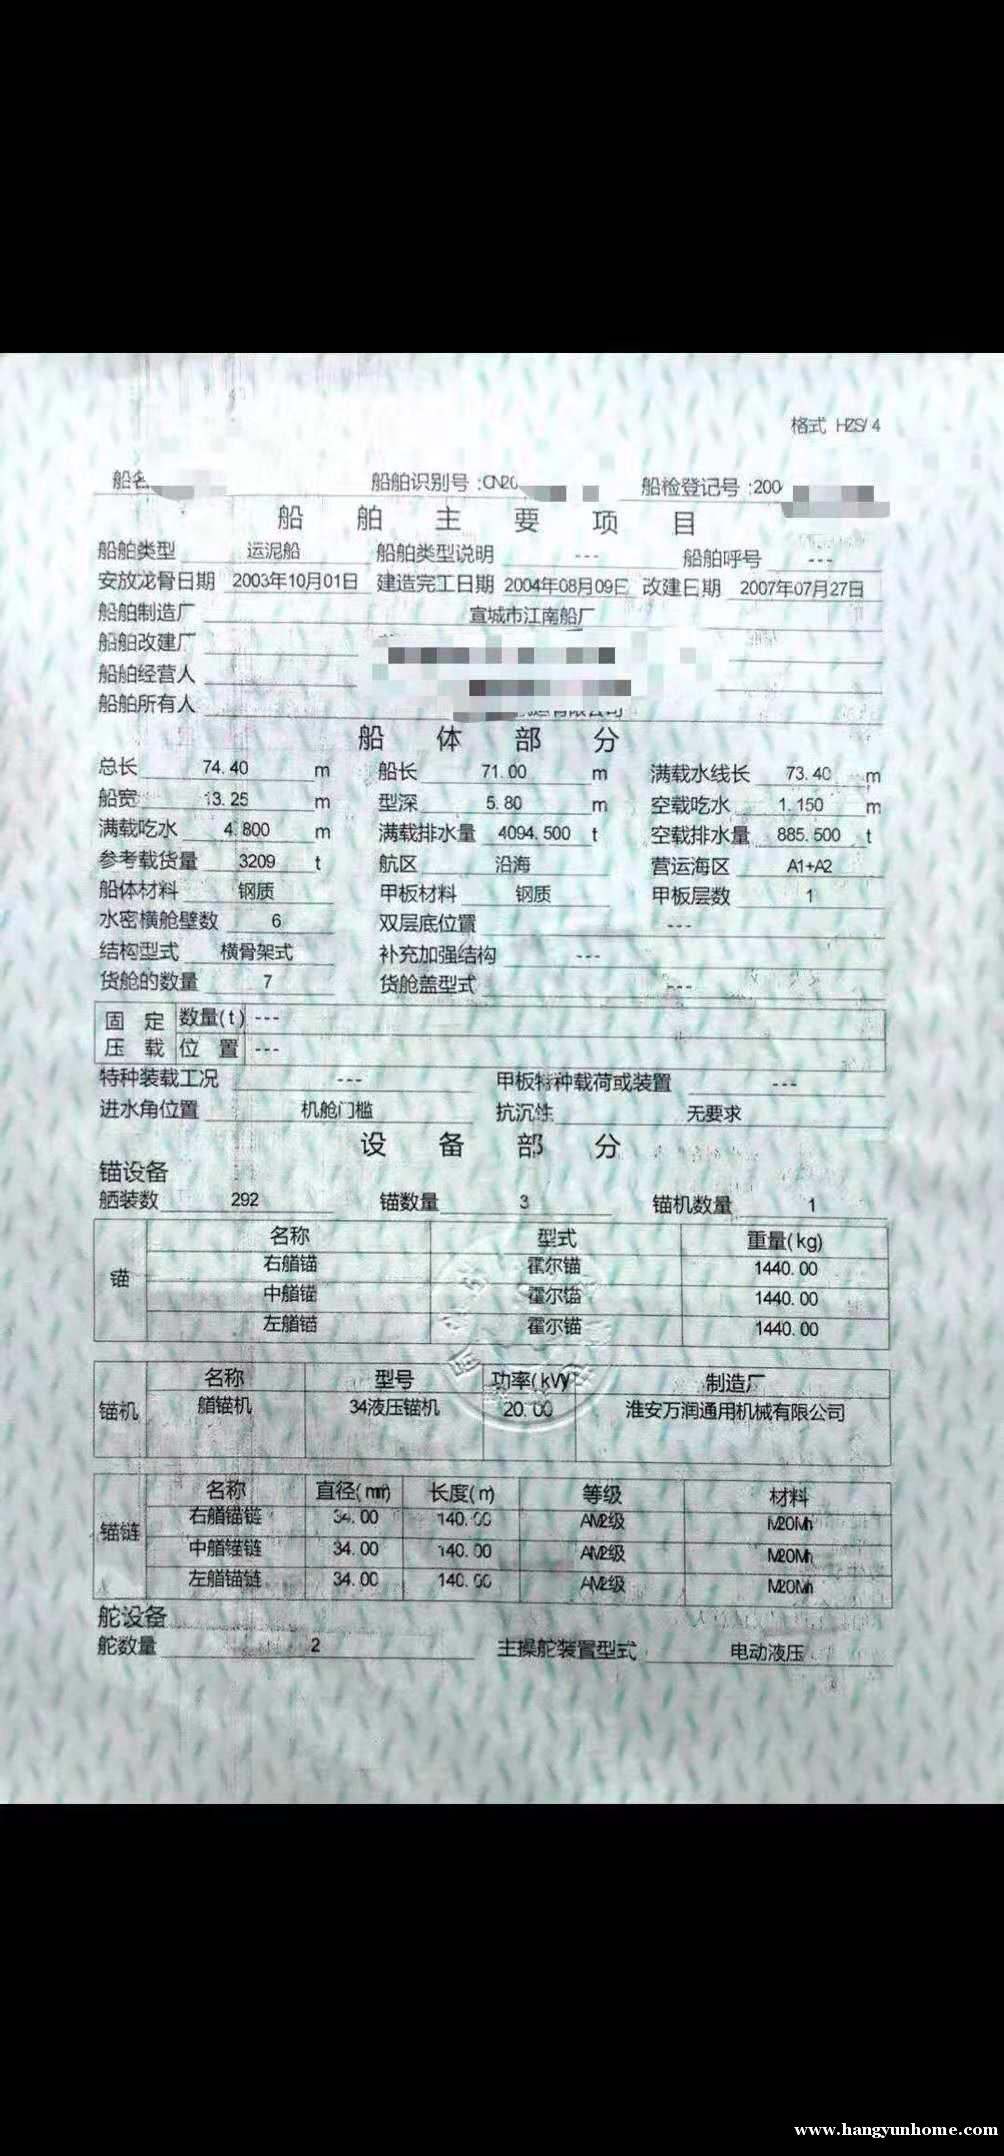 格式 HZS/4
船名 船舶识别号:CN20 船检登记号:200
船舶主要项目
船舶类型 运泥船 船舶类型说明 --- 船舶呼号 ---
安放龙骨日期 2003年10月01日 建造完工日期 2004年08月09日 改建日期 2007年07月27日
船舶制造厂 宣城市江南船厂
船舶改建厂
船舶经营人
船舶所有人 有限公司
船体部分
总长 74.40 m 船长 71.00 m 满载水线长 73.40 m
船宽 13.25 m 型深 5.80 m 空载吃水 1.150 m
满载吃水 4.800 m 满载排水量 4094.500 t 空载排水量 885.500 t
参考载货量 3209 t 航区 沿海 营运海区 A1+A2
船体材料 钢质 甲板材料 钢质 甲板层数 1
水密横舱壁数 6 双层底位置 ---
结构型式 横骨架式 补充加强结构 ---
货舱的数量 7 货舱盖型式 ---
固定 数量(t) ---
压载 位置 ---
特种装载工况 --- 甲板特种载荷或装置 ---
进水角位置 机舱门槛 抗沉性 无要求
设备部分
锚设备
舾装数 292 锚数量 3 锚机数量 1
名称 型式 重量(kg)
右艏锚 霍尔锚 1440.00
锚 中艏锚 霍尔锚 1440.00
左艏锚 霍尔锚 1440.00
名称 型号 功率(kW) 制造厂
锚机 艏锚机 34液压锚机 20.00 淮安万润通用机械有限公司
名称 直径(mm) 长度(m) 等级 材料
右艏锚链 34.00 140.00 AM2级 M20Mn
锚链 中艏锚链 34.00 140.00 AM2级 M20Mn
左艏锚链 34.00 140.00 AM2级 M20Mn
舵设备
舵数量 2 主操舵装置型式 电动液压
www.hangyunhome.com